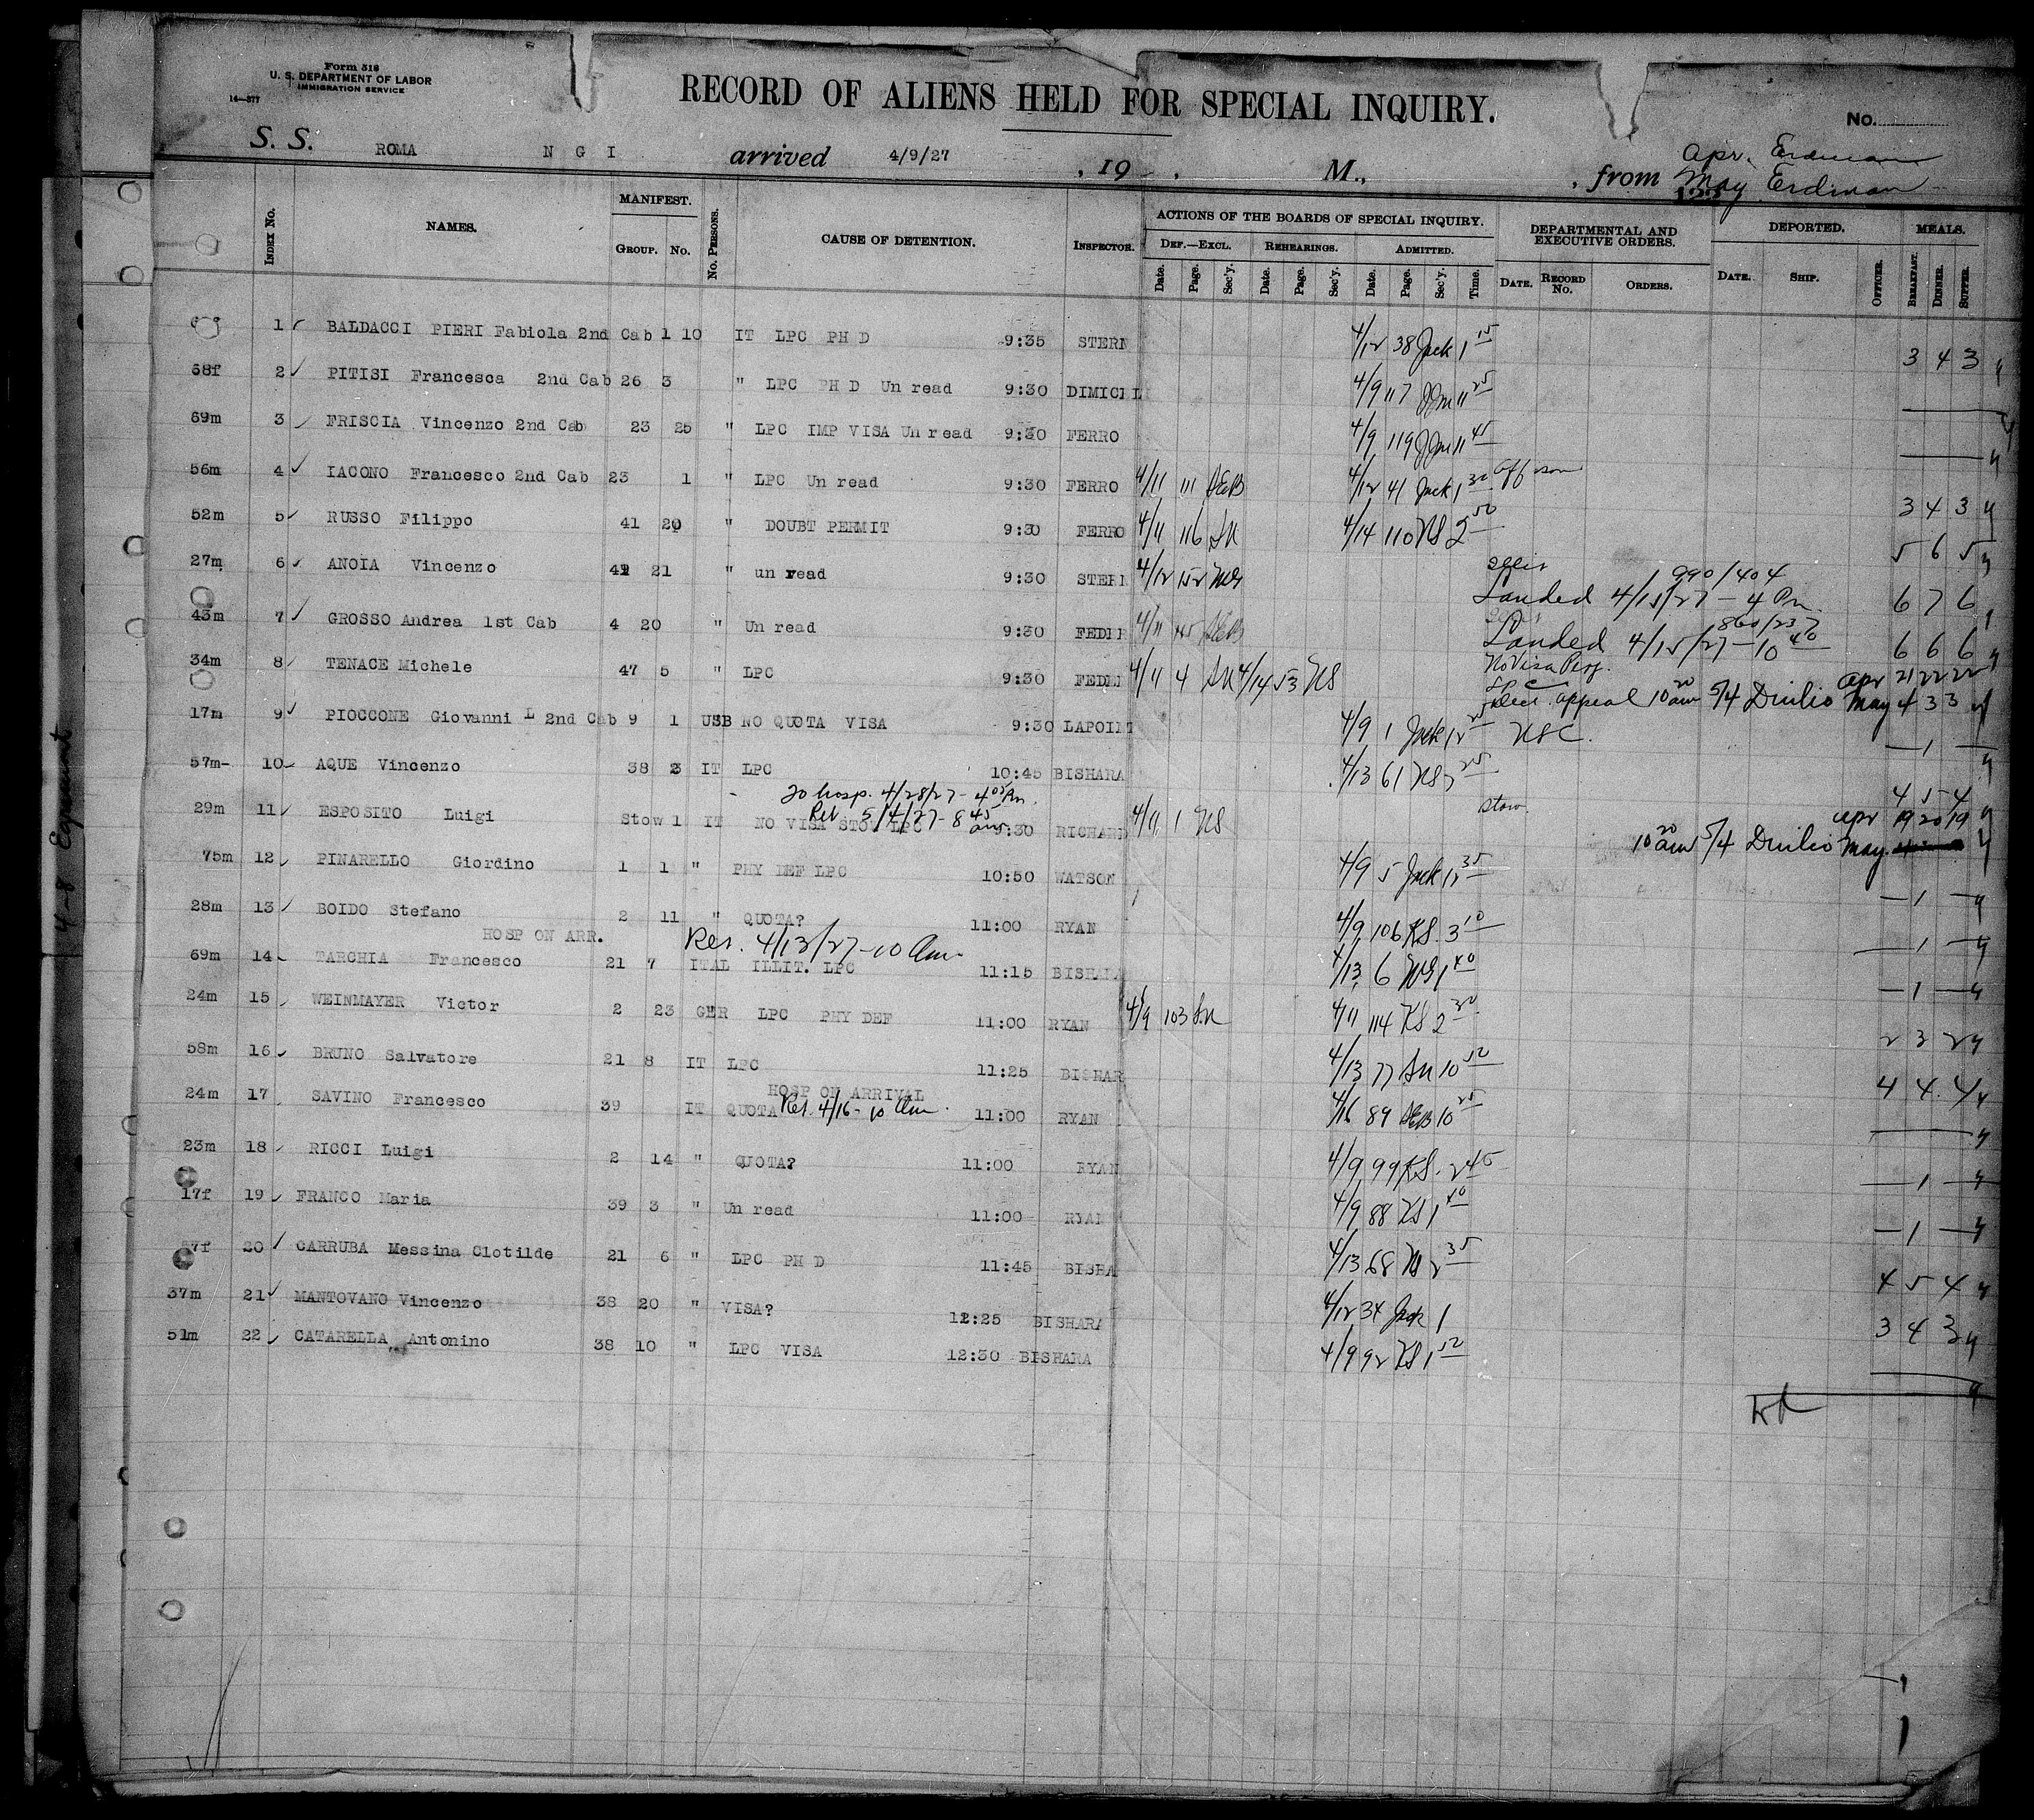 Form 518
U. S. DEPARTMENT OF LABOR
IMMIGRATION SERVICE
14—377
RECORD OF ALIENS HELD FOR SPECIAL INQUIRY.
No.
S. S. ROMA N G I arrived 4/9/27 , 19 , M., , from Apr. Erdman
May Erdman
INDEX No. NAMES. MANIFEST. GROUP. No. No. PERSONS. CAUSE OF DETENTION. INSPECTOR. ACTIONS OF THE BOARDS OF SPECIAL INQUIRY. DEF.—EXCL. REHEARINGS. ADMITTED. DEPARTMENTAL AND EXECUTIVE ORDERS. DEPORTED. MEALS.
Date. Page. Sec'y. Date. Page. Sec'y. Date. Page. Sec'y. Time. DATE. RECORD No. ORDERS. DATE. SHIP. OFFICER. BREAKFAST. DINNER. SUPPER.
1 BALDACCI PIERI Fabiola 2nd Cab 1 10 IT LPC PH D 9:35 STERN 4/12 38 Jack 1 15 3 4 3
68f 2 PITISI Francesca 2nd Cab 26 3 " LPC PH D Un read 9:30 DIMICIL 4/9 117 11 25
69m 3 FRISCIA Vincenzo 2nd Cab 23 25 " LPC IMP VISA Un read 9:30 FERRO 4/9 119 11 45
56m 4 IACONO Francesco 2nd Cab 23 1 " LPC Un read 9:30 FERRO 4/11 111 SEB 4/12 41 Jack 1 30 3 4 3
52m 5 RUSSO Filippo 41 20 " DOUBT PERMIT 9:30 FERRO 4/11 116 4/14 110 NS 2 50 5 6 5
27m 6 ANOIA Vincenzo 41 21 " un read 9:30 STERN 4/12 152 990/404
Landed 4/15/27 - 4 Pm. 6 7 6
43m 7 GROSSO Andrea 1st Cab 4 20 " Un read 9:30 FEDER 4/11 145 SEB 860/237
Landed 4/15/27 - 10 40 6 6 6
34m 8 TENACE Michele 47 5 " LPC 9:30 FEDER 4/11 4 4/14 53 NS No Visa LPC appeal 10 20 am 5/4 Duilio Apr 21 22 22
May 4 3 3
17m 9 PIOCCONE Giovanni L 2nd Cab 9 1 USB NO QUOTA VISA 9:30 LAPOINT 4/9 1 Jack 12 25 USC. — 1 —
57m- 10 AQUE Vincenzo 38 3 IT LPC 10:45 BISHARA 4/13 61 NS 2 25 4 5 4
To hosp. 4/28/27 - 4 05 Pm.
Ret 5/4/27 - 8 45 am
29m 11 ESPOSITO Luigi Stow 1 IT NO VISA STOW LPC 9:30 RICHARD 4/11 1 NS Stow. Apr 19 20 19
10 20 am 5/4 Duilio May.
75m 12 PINARELLO Giordino 1 1 " PHY DEF LPC 10:50 WATSON 4/9 5 Jack 12 35 — 1 —
28m 13 BOIDO Stefano 2 11 " QUOTA? 11:00 RYAN 4/9 106 KS. 3 10 — 1 —
HOSP ON ARR. Res. 4/13/27 - 10 Am.
69m 14 TARCHIA Francesco 21 7 ITAL ILLIT. LPC 11:15 BISHARA 4/13 6 1 40 — 1 —
24m 15 WEINMAYER Victor 2 23 GER LPC PHY DEF 11:00 RYAN 4/9 103 4/11 114 KS 2 30 2 3 2
58m 16 BRUNO Salvatore 21 8 IT LPC 11:25 BISHAR 4/13 77 10 52 4 4 4
HOSP ON ARRIVAL
24m 17 SAVINO Francesco 39 IT QUOTA Res. 4/16 - 10 Am. 11:00 RYAN 4/16 89 SEB 10 25
23m 18 RICCI Luigi 2 14 " QUOTA? 11:00 RYAN 4/9 99 KS. 2 45 — 1 —
17f 19 FRANCO Maria 39 3 " Un read 11:00 RYAN 4/9 88 KS 1 40 — 1 —
57f 20 CARRUBA Messina Clotilde 21 6 " LPC PH D 11:45 BISHA 4/13 68 NS 2 35 4 5 4
37m 21 MANTOVANO Vincenzo 38 20 " VISA? 12:25 BISHARA 4/12 34 Jack 1 3 4 3
51m 22 CATARELLA, Antonino 38 10 " LPC VISA 12:30 BISHARA 4/9 92 KS 1 52